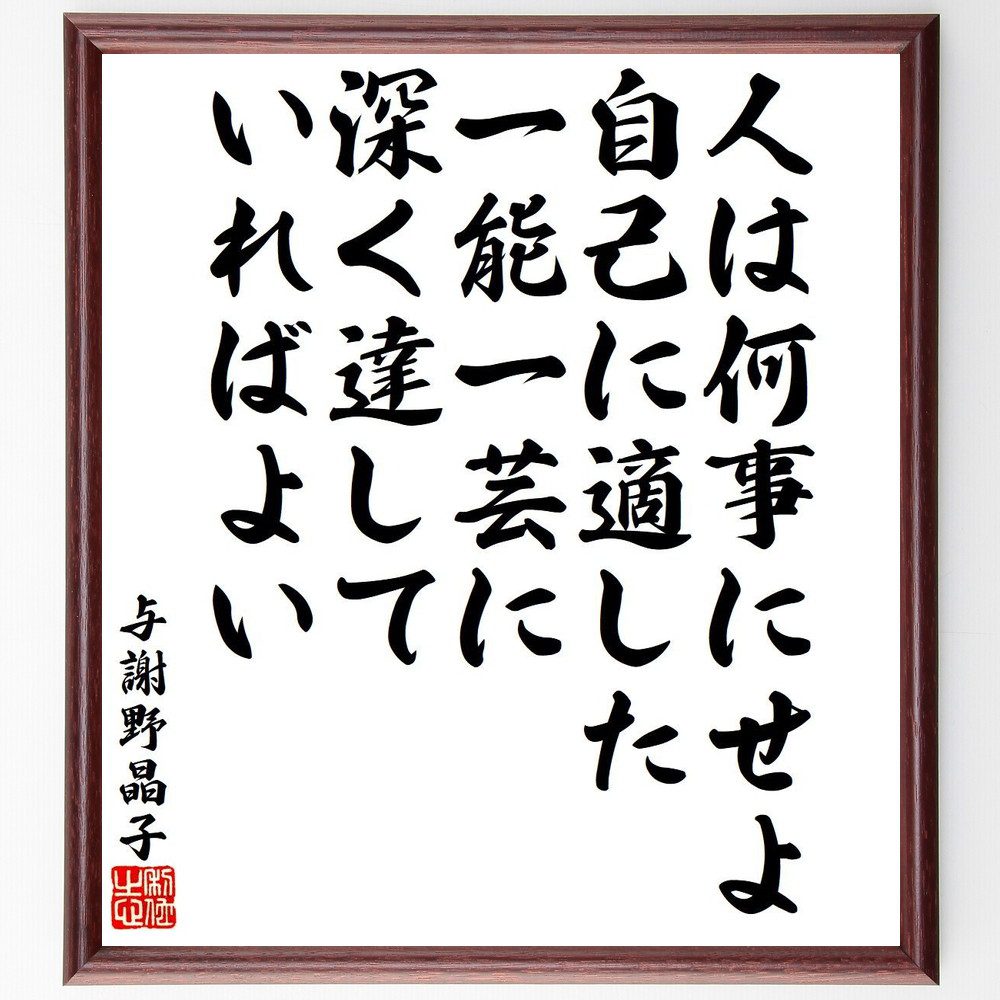 人は何事にせよ
自己に適した
一能一芸に
深く達して
いればよい
与謝野晶子